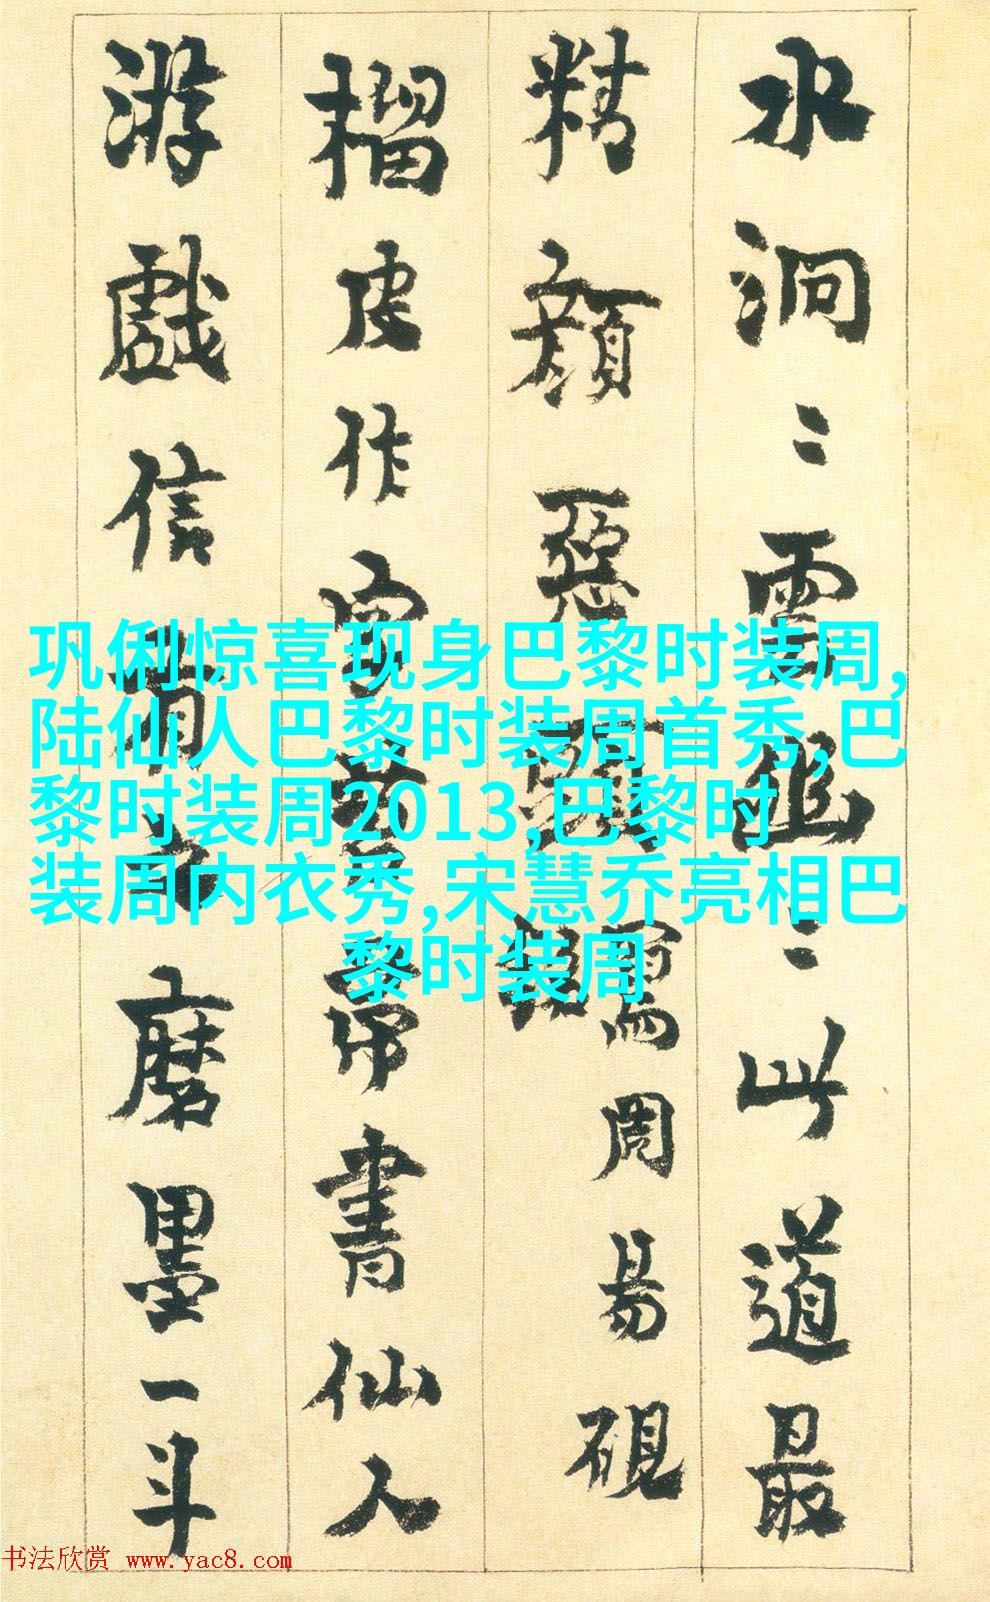 巩俐惊喜现身巴黎时装周,
陆仙人巴黎时装周首秀,巴
黎时装周2013,巴黎时
装周内衣秀,宋慧乔亮相巴
黎时装周
水洞〻雲幽〻此道最
精顏惡頭寫周易硯
榴皮作字帚書仙人
游戲信磨墨一斗
书法欣赏 www.yac8.com